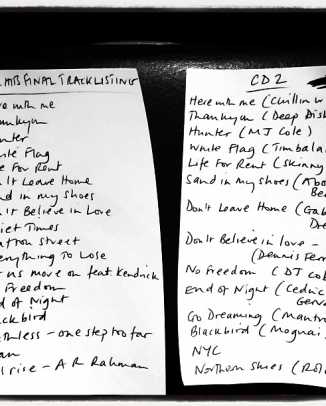 MB FINAL TRACKLISTING
re with me
ankyou
unter
ite Flag
e For Rent
n't Leave Home
nd in my shoes
n't Believe in Love
iet Times
afton Street
erything To Lose
t us move on feat. Kendrick
Freedom
d of Night
ackbird
thless - one step too far
an
l rise - A R Rahman
CD2
Here with me (Chillin w
Thankyou (Deep Dish
Hunter (MJ Cole)
White Flag (Timbala
Life For Rent (Skinny
Sand in my shoes (Abo
Be
Don't Leave Home (Gab
Dre
Don't Believe in love -
(Dennis Ferr
No Freedom (DJ Col
End of Night (Cedric
Gerv
Go Dreaming (Mantro
Blackbird (Mogwai
NYC
Northern Skies (Rol